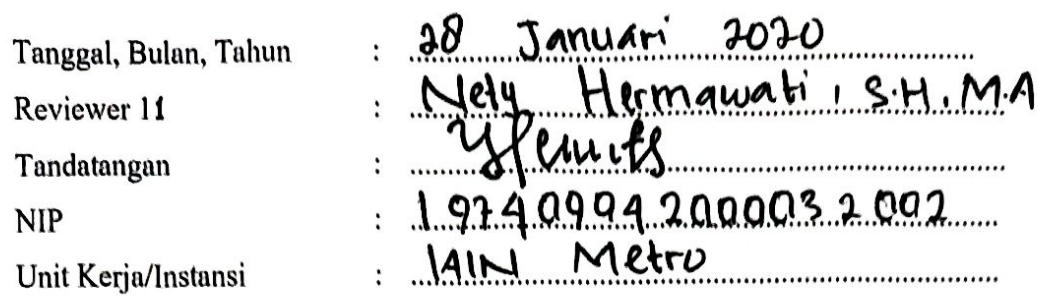 Tanggal, Bulan, Tahun : 28 Januari 2020
Reviewer 11 : Nety Hermawati, S.H, M.A
Tandatangan :
NIP : 197409942000032002
Unit Kerja/Instansi : IAIN Metro